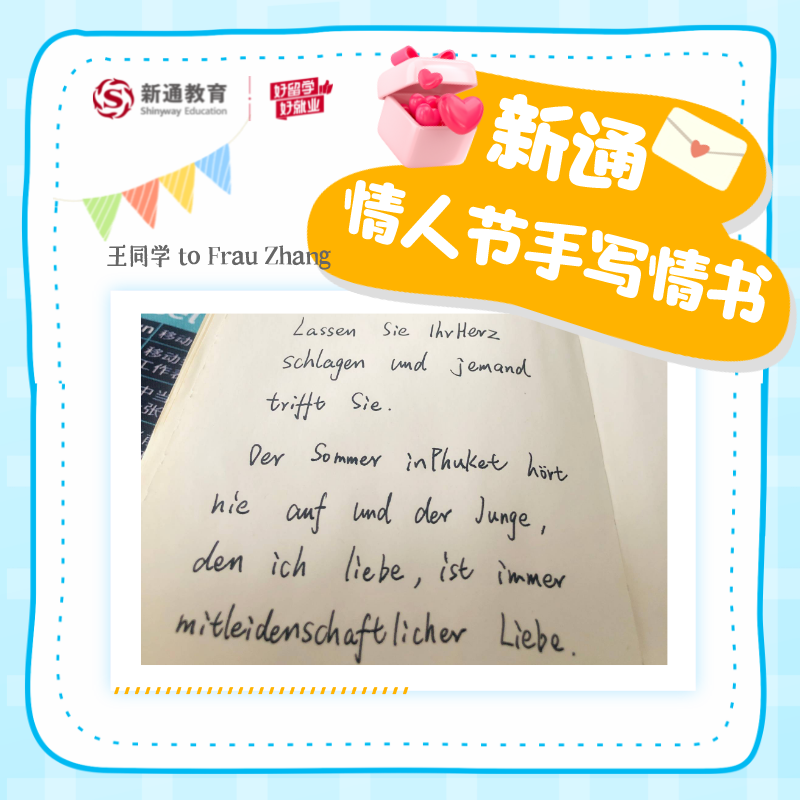 新通教育
Shinyway Education
好留学
好就业
新通
情人节手写情书
王同学 to Frau Zhang
移动
移动
工作
Lassen Sie IhrHerz
schlagen und jemand
trifft Sie.
Der Sommer inPhuket hört
nie auf und der Junge,
den ich liebe, ist immer
mitleidenschaftlicher Liebe.